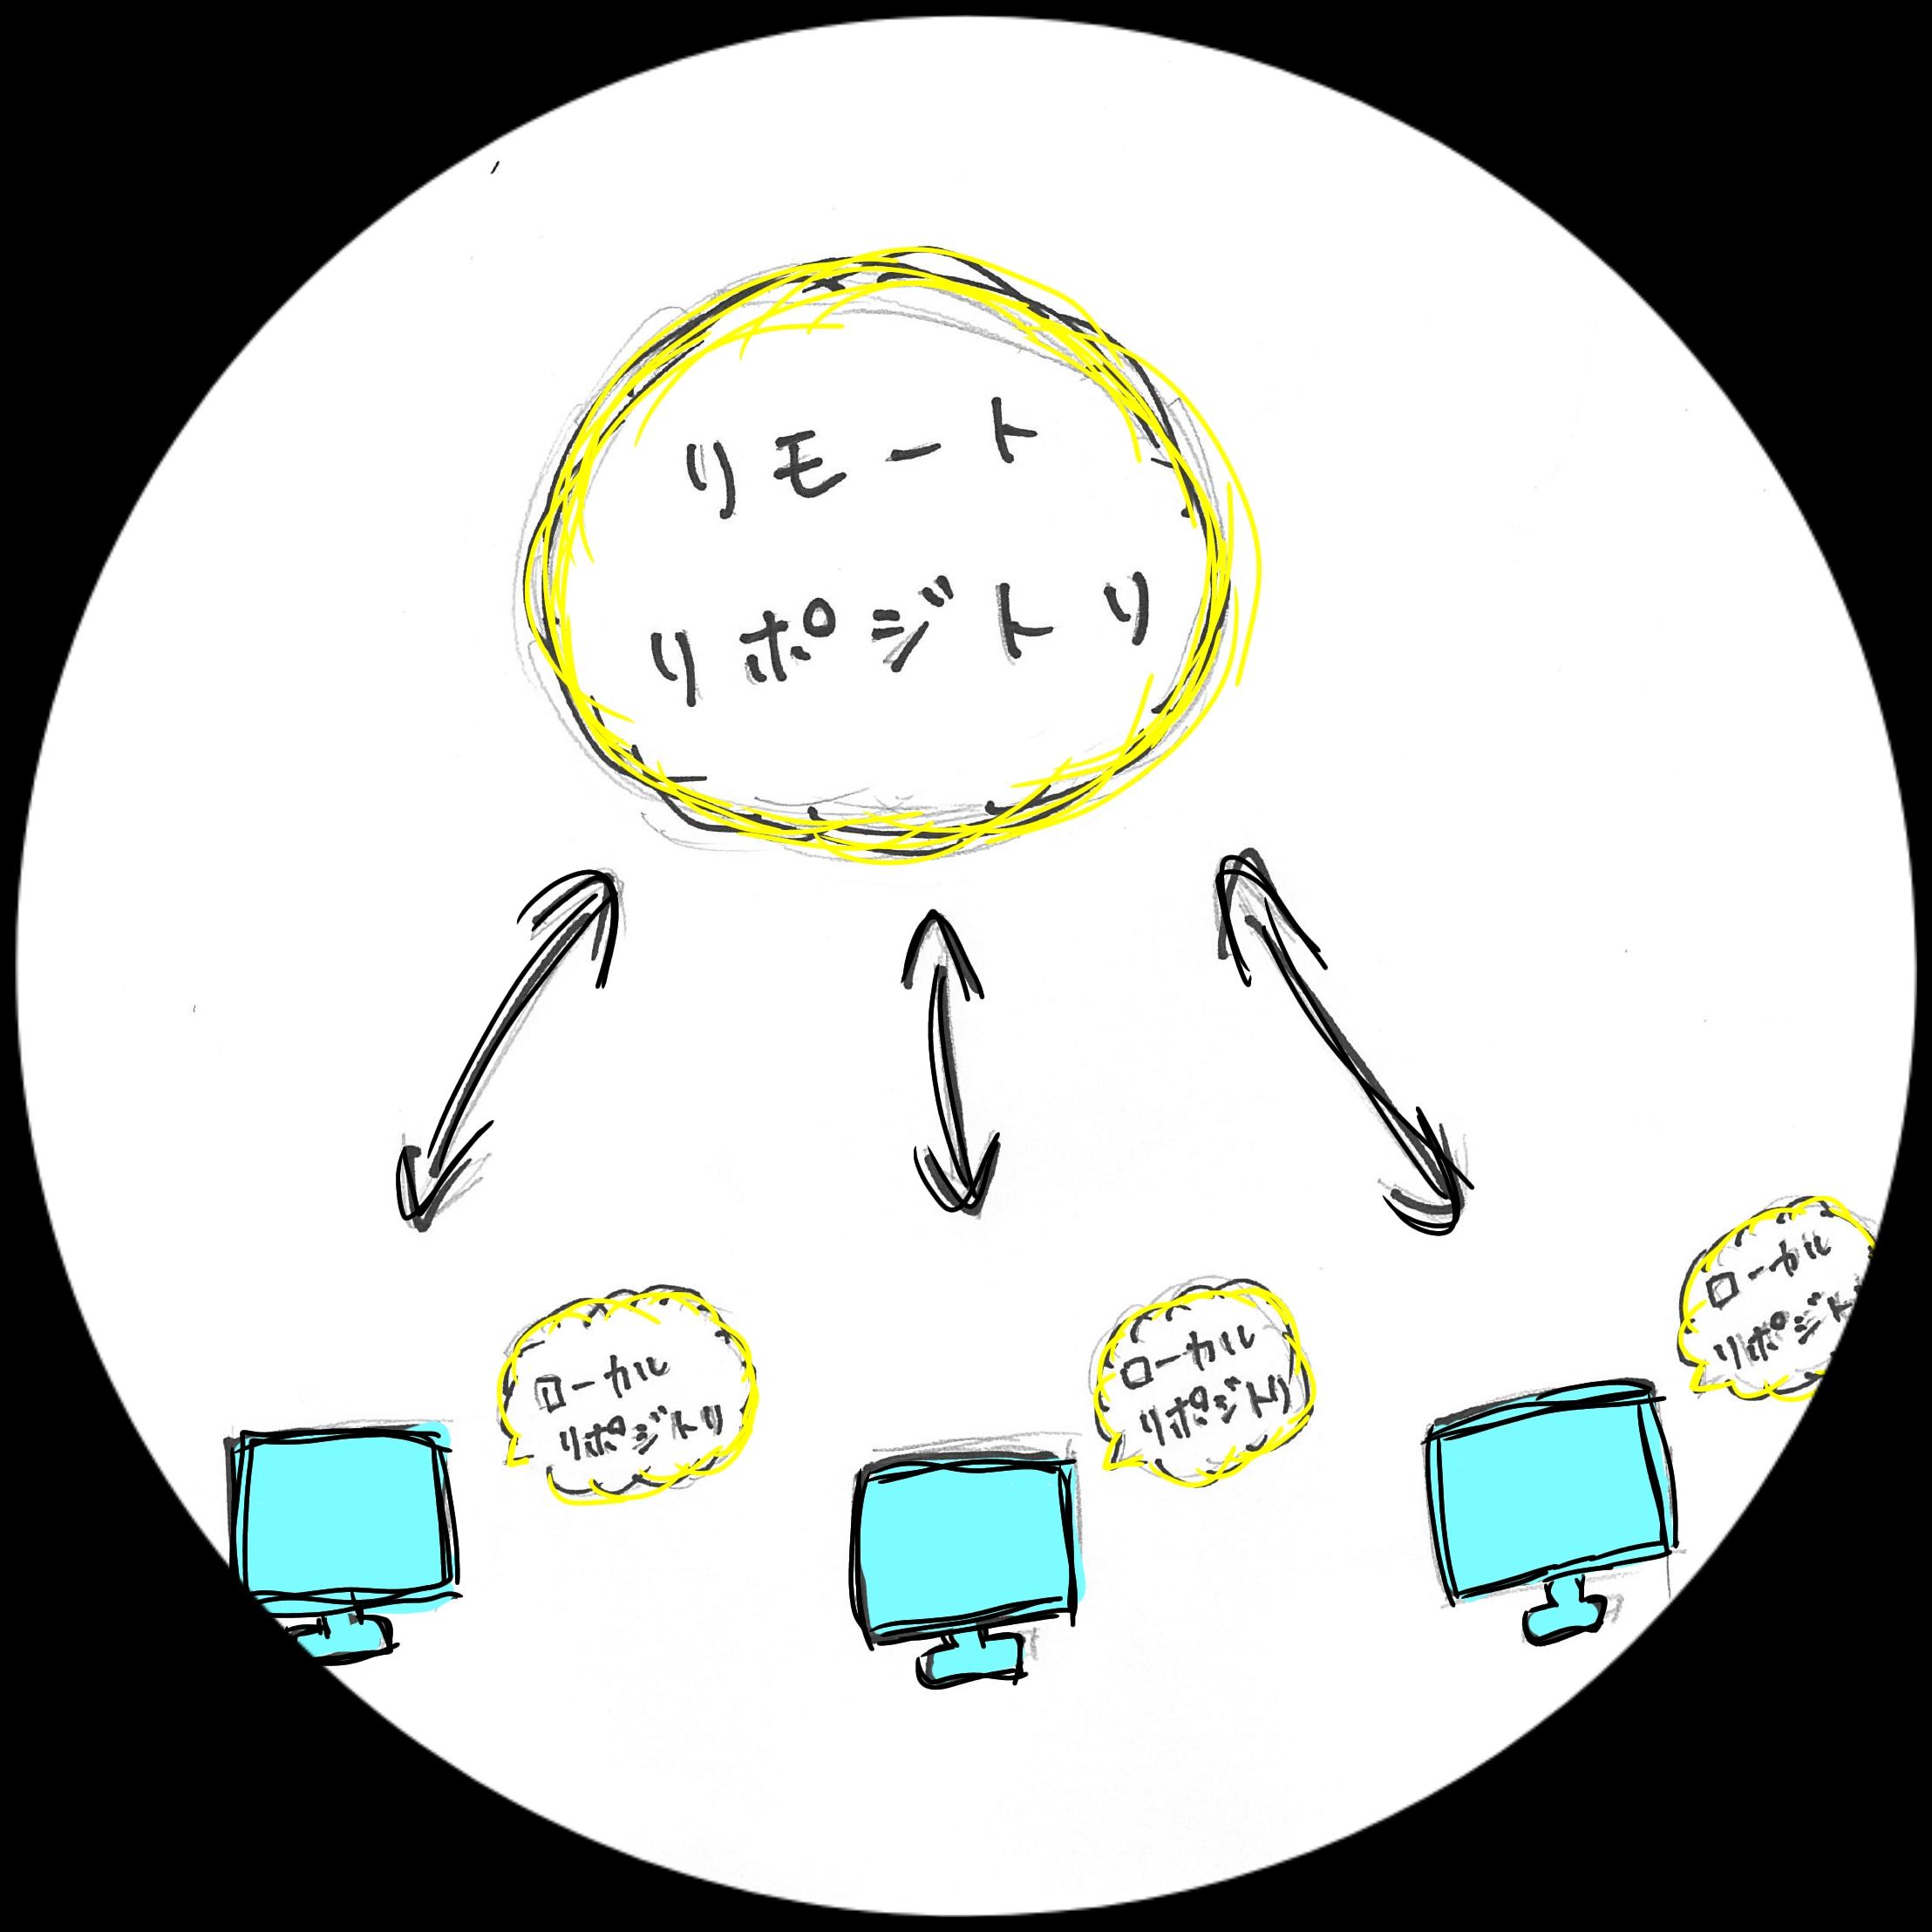 リモート
リポジトリ
ローカル
リポジトリ
ローカル
リポジトリ
ローカル
リポジト